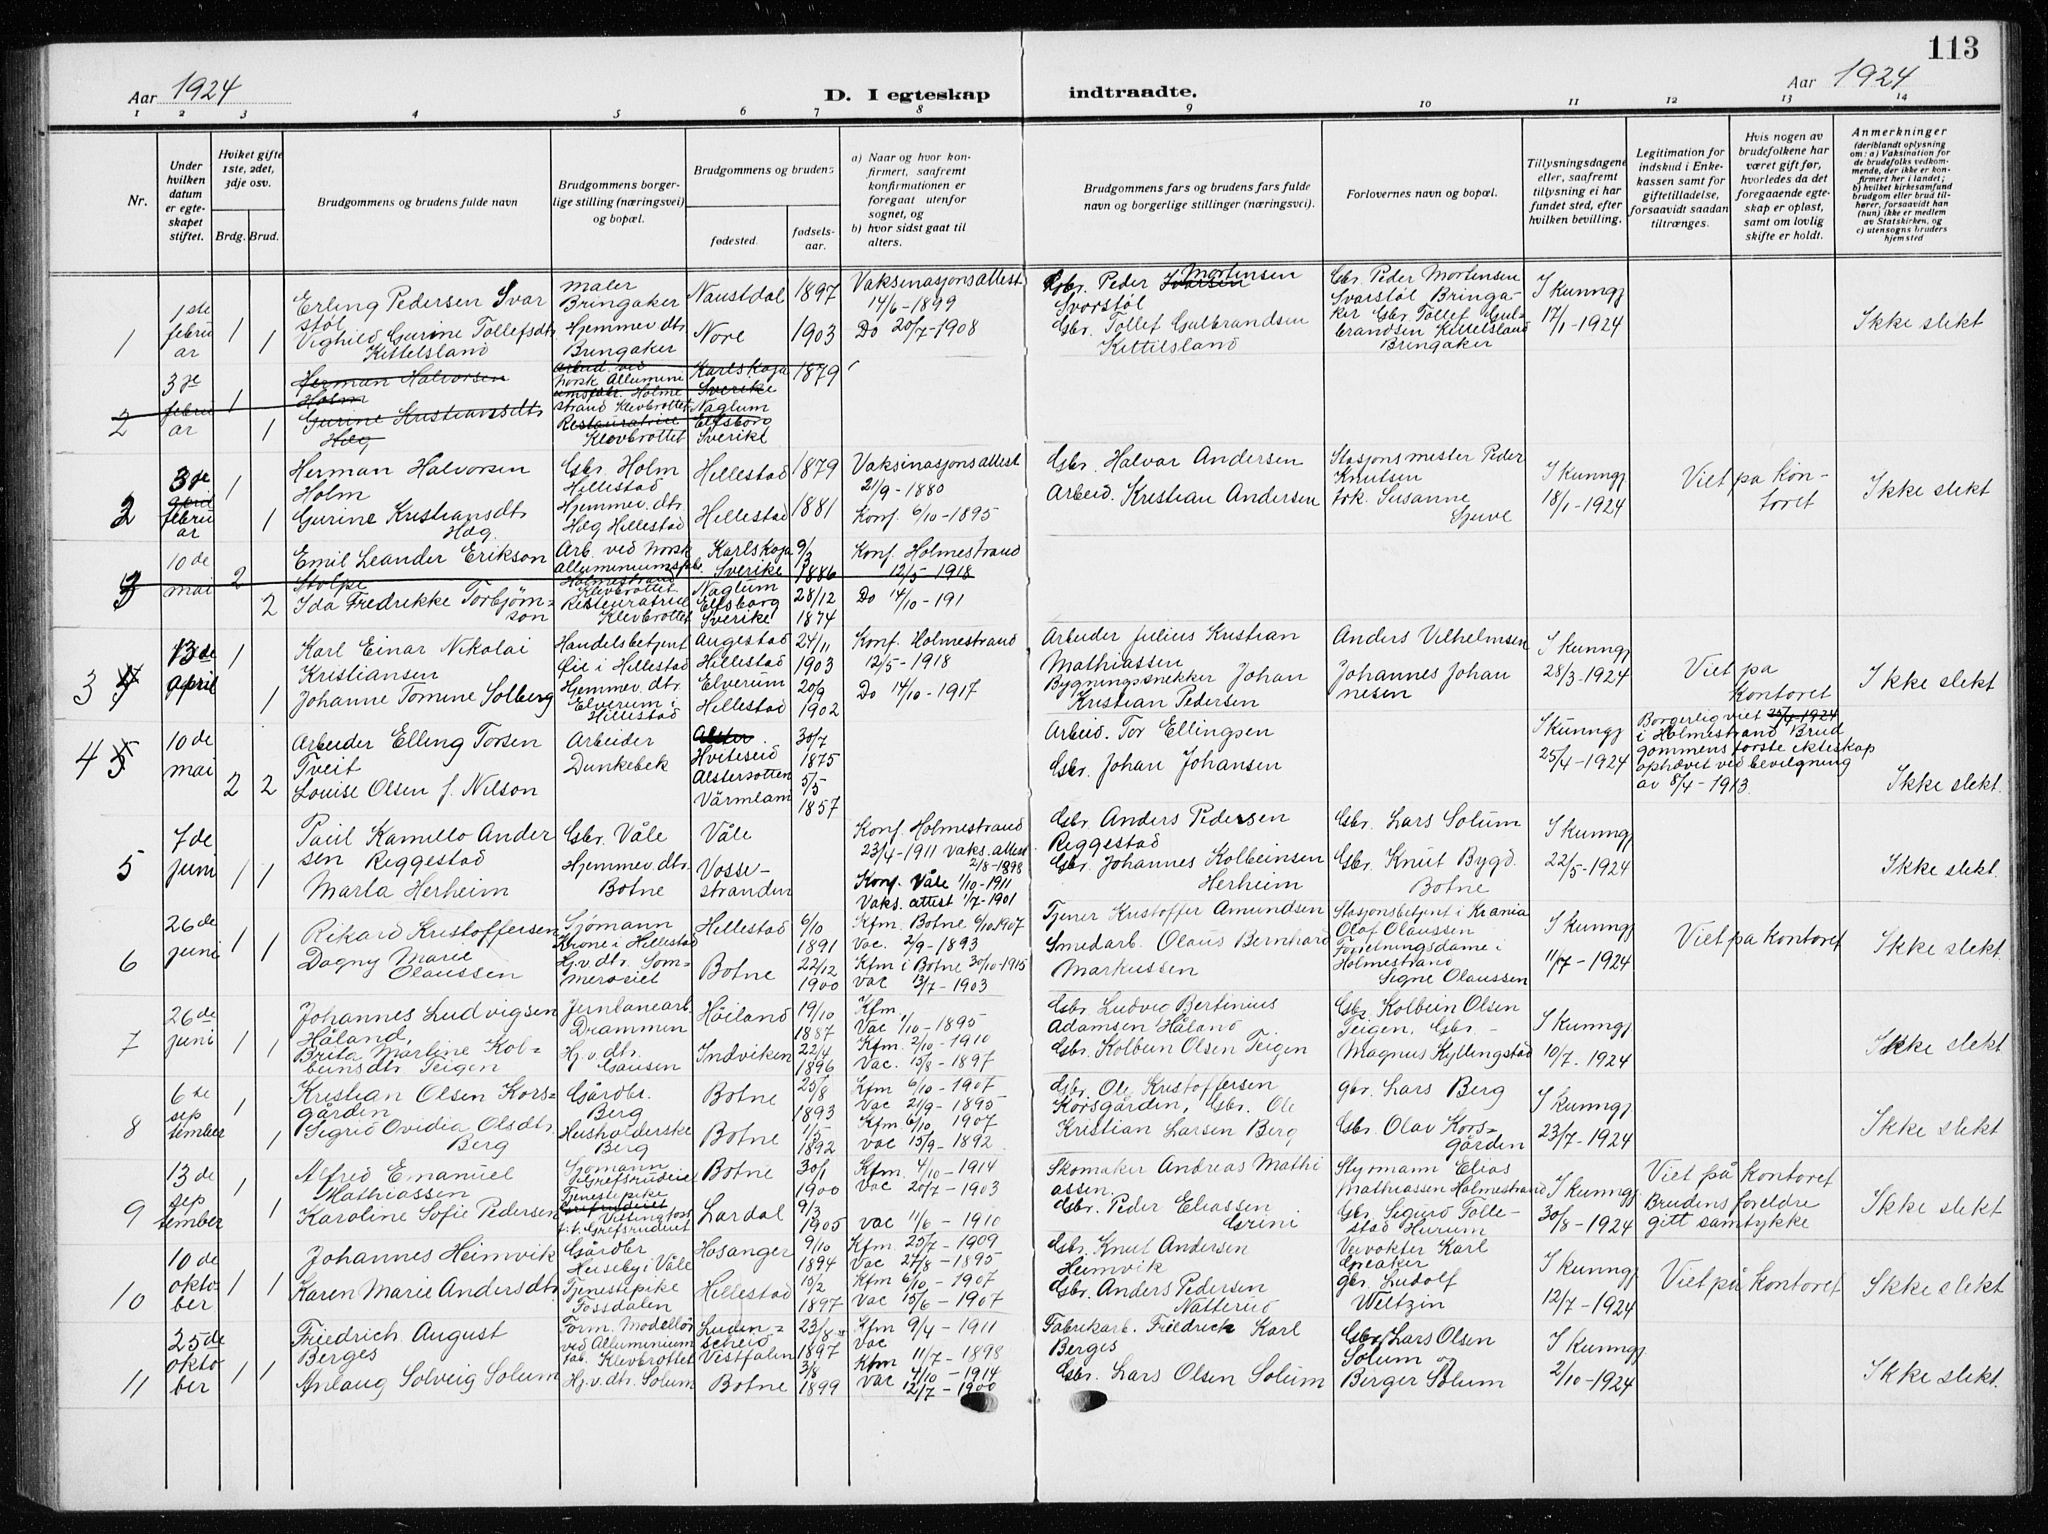 113
Aar 1924
D. I egteskap indtraadte.
Aar 1924
1 2 3 4 5 6 7 8 9 10 11 12 13 14
Nr.
Under hvilken datum er egteskapet stiftet.
Hviket gifte 1ste, 2det, 3dje osv.
Brdg. Brud.
Brudgommens og brudens fulde navn
Brudgommens borgerlige stilling (næringsvei) og bopæl.
Brudgommens og brudens
fødested.
fødselsaar.
a) Naar og hvor konfirmert, saafremt konfirmationen er foregaat utenfor sognet, og
b) hvor sidst gaat til alters.
Brudgommens fars og brudens fars fulde navn og borgerlige stillinger (næringsvei).
Forlovernes navn og bopæl.
Tillysningsdagene eller, saafremt tillysning ei har fundet sted, efter hvilken bevilling.
Legitimation for indskud i Enkekassen samt for giftetilladelse, forsaavidt saadan tiltrænges.
Hvis nogen av brudefolkene har været gift før, hvorledes da det foregaaende egteskap er opløst, samt om lovlig skifte er holdt.
Anmerkninger
(deriblandt oplysning om: a) Vaksination for de brudefolks vedkommende, der ikke er konfirmert her i landet; b) hvilket kirkesamfund brudgom eller brud tilhører, forsaavidt han (hun) ikke er medlem av Statskirken, og c) utensogns bruders hjemsted
1 1ste februar 1 1
Erling Pedersen Svarstøl
Vighild Gurine Tollefsdtr Kittelsland
maler Bringaker
Hjemmev. dtr Bringaker
Naustdal 1897
Nore 1903
Vaksinasjonsattest 14/6-1899
Do 20/7-1908
Gbr. Peder Ivarsen Mortensen Svorstøl
Gbr. Tollef Gulbrandsen Kittilsland
Gbr. Peder Mortensen Svarstøl Bringaker Gbr. Tollef Gulbrandsen Kittelsland Bringaker
I kunngj 17/1-1924
Ikke slekt
2 3je februar 1 1
Herman Halvorsen Holm
Gurine Kristiansdtr Hæg
Arbeid. ved Norsk Alluminiumsfabr. Holmestrand Klevbrottet
Restauratrice Klevbrottet
Karlskoga Sverike 1879
Naglum Elfsborg Sverike
2 3je april februar 1 1
Herman Halvorsen Holm
Gurine Kristiansdtr Hæg
Gbr. Holm Hillestad
Hjemmev. dtr. Hæg Hillestad
Hillestad 1879
Hillestad 1881
Vaksinasjonsattest 21/9-1880
Konf. 6/10-1895
Gbr. Halvar Andersen
Arbeid. Kristian Andersen
Stasjonsmester Peder Knutsen
frk. Susanne
I kunngj 18/1-1924
Viet pa kontoret
Ikke slekt
3 10de mai 2 2
Emil Leander Erikson Stolpe
Ida Fredrikke Torbjørnson
Arb. ved norsk alluminiumsfb. Holmestrand Klevbrottet
Restauratrice Klevbrottet
Karlskoga Sverike 9/3 1886
Naglum Elfsborg Sverike 28/12 1874
Konf. Holmestrand 12/5-1918
Do 14/10-191
3 13de april 1 1
Karl Einar Nikolai Kristiansen
Johanne Tomine Solberg
Handelsbetjent Eie i Hillestad
Hjemmev. dtr. Elverum i Hillestad
Augestad Hillestad 24/11 1903
Elverum Hillestad 20/9 1902
Konf. Holmestrand 12/5-1918
Do 14/10-1917
Arbeider Julius Kristian Mathiassen
Bygningssnekker Johan Kristian Pedersen
Anders Vilhelmsen
Johannes Johannesen
I kunngj 28/3-1924
Viet pa Kontoret
Ikke slekt
4 5 10de mai 2 2
Arbeider Elling Torsen Tveit
Louise Olsen f. Nilson
Arbeider Dunkebek
Alster Hviteseid 30/7 1875
Alstersotten Värmland 5/5 1857
Arbeid. Tor Ellingsen
Gbr. Johan Johansen
I kunngj 25/4-1924
Borgerlig viet 25/4-1924 i Holmestrand Brudgommens første ekteskap ophævit ved bevilgning av 8/4-1913.
Ikke slekt.
5 7de juni 1 1
Paul Kamillo Andersen Reggestad
Marta Herheim
Gbr. Våle
Hjemmev. dtr. Botne
Våle
Vossestranden
Konf. Holmestrand 23/4-1911 Vaks. attest 2/8-1898
Konf. Våle 1/10-1911
Vaks. attest 1/7-1901
Gbr. Anders Pedersen Reggestad
Gbr. Johannes Kolbeinsen Herheim
Gbr. Lars Solum
Gbr. Knut Bygd. Botne
I kunngj 22/5-1924
Ikke slekt.
6 26de juni 1 1
Rikard Kristoffersen
Dagny Marie Olaussen
Sjømann Krone i Hillestad
Hj.v.dtr. Sommerosiet
Hillestad 6/10 1891
Botne 22/12 1900
Kfm. Botne 6/10 1907
Vac. 2/9-1893
Kfm i Botne 30/10-1915
vac 13/7-1903
Tjener Kristoffer Amundsen
Smedarb. Olaus Bernhard Markussen
Stasjonsbetjent i Krania Olaf Olaussen
Forretningsdame i Holmestrand Signe Olaussen
I kunngj 11/7-1924
Viet pa kontoret
Ikke slekt.
7 26de juni 1 1
Johannes Ludvigsen Håland,
Brita Martine Kolbeinsdtr Teigen
Jernbanearb. Drammen
Hj.v.dtr. Gausen
Høiland 19/10 1887
Indviken 22/4 1896
Kfm.
Vac 1/10-1895
Kfm. 2/10-1910
Vac. 15/8-1897
Gbr. Ludvig Bertinius Adamsen Håland
Gbr. Kolbein Olsen Teigen
Gbr. Kolbein Olsen Teigen, Gbr. - Magnus Kyllingstad
I kunngj 10/7-1924
Ikke slekt
8 6te september 1 1
Kristian Olsen Korsgården
Sigrid Ovidia Olsdtr Berg
Gårdbr. Berg
Husholderske Berg
Botne 25/8 1893
Botne 1/5 1892
Kfm 6/10-1907
Vac 21/9-1895
Kfm 6/10-1907
vac 15/9-1892
Gbr. Ole Kristoffersen Korsgården, Gbr. Ole Kristian Larsen Berg
gbr. Lars Berg
Gbr. Olav Korsgården
I kunngj 23/7-1924
Ikke slekt
9 13de september 1 1
Alfred Emanuel Mathiassen
Karoline Sofie Pedersen
Sjømann Grefsrudeie
Tjenestepike Grefsrudeiet Vittingfoss t.t. Grefsrudeiet
Botne 30/1 1900
Lardal 9/3 1905
Kfm. 4/10-1914
Vac 20/7-1903
vac 11/6-1910
Skomaker Andreas Mathiassen.
Gbr. Peder Eliassen Grini
Styrmann Elias Mathiassen Holmestrand
Gbr. Sigurd Tollestad Hurum
I kunngj 30/8-1924
Viet på kontoret
Brudens foreldre gitt samtykke
Ikke slekt
10 10de oktober 1 1
Johannes Heimvik
Karen Marie Andersdtr
Gårdbr Huseby i Våle
Tjenestepike Fossdalen
Hosanger 9/10 1894
Hillestad 15/2 1897
Kfm. 25/7-1909
Vac 27/8-1895
Kfm 6/10-1907
Vac 15/6-1907
Gbr. Knut Andersen Heimvik
Gbr. Anders Pedersen Natterud
Veivokter Karl Speaker
gbr. Ludolf Weltzin
I kunngj 12/7-1924
Viet på kontoret
Ikke slekt
11 25de oktober 1 1
Friedrich August Berges
Anlaug Solveig Solum
Form. Modellør ved Alluminium fab. Klevbrottet
Hj.v.dtr. Solum
Ludenscheid Vestfalen 23/8 1897
Botne 3/8 1899
Kfm 9/4-1911
Vac 11/7-1898
Kfm 4/10-1914
Vac 12/7-1900
Fabrikarb. Friedrich Karl Berges
Gbr. Lars Olsen Solum
Gbr Lars Olsen Solum og Birger Solum
I kunngj 2/10-1924
Ikke slekt.